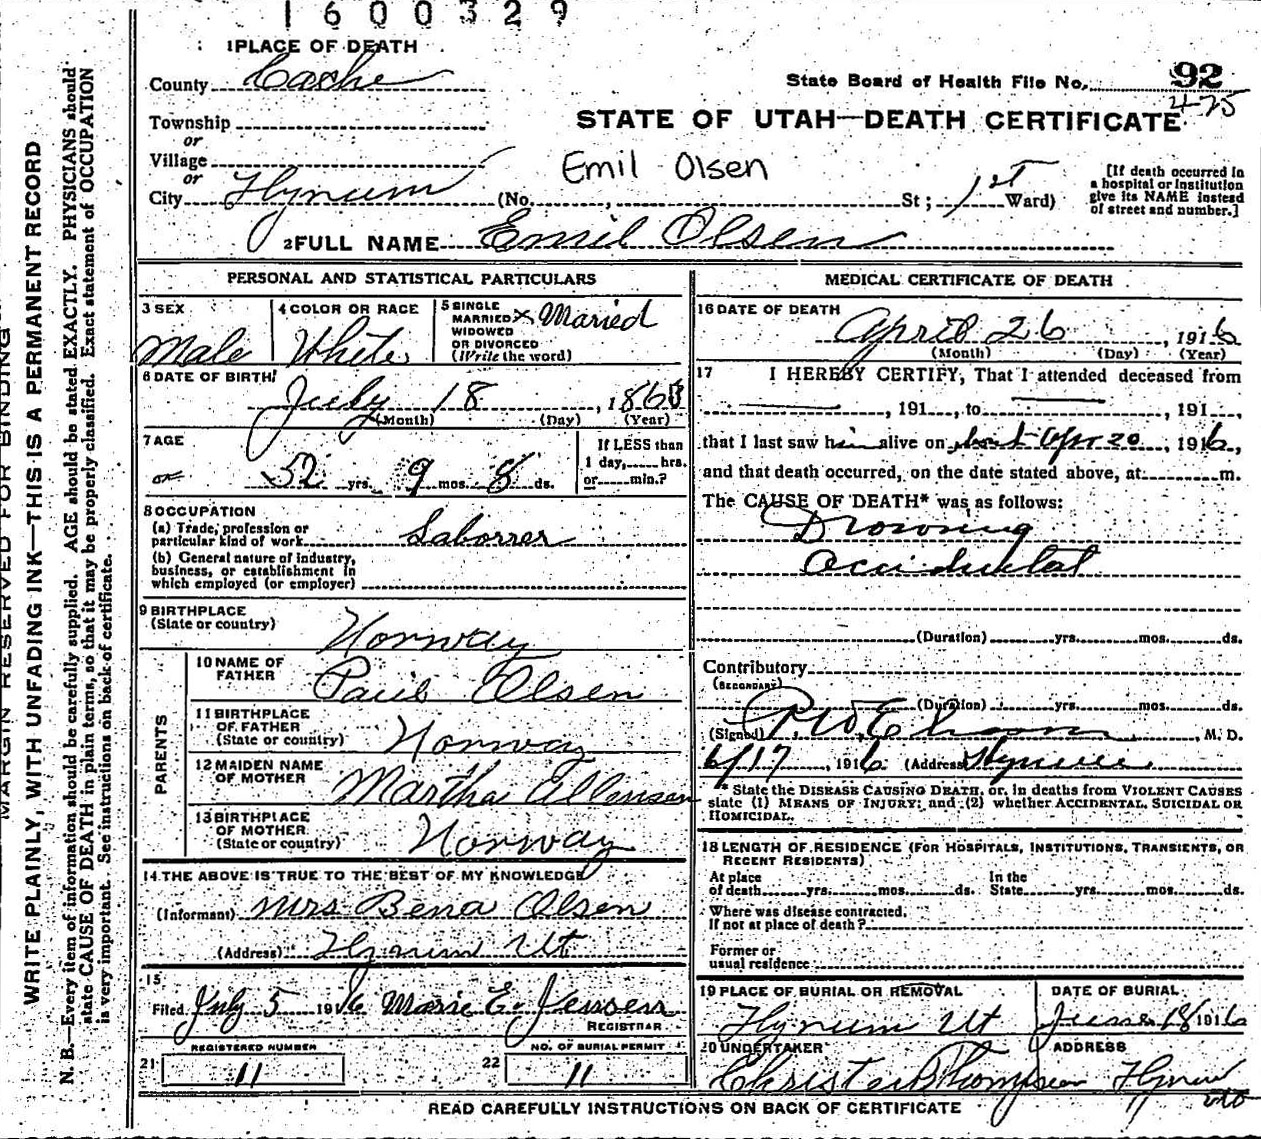 1600329
1 PLACE OF DEATH
County Cache
State Board of Health File No. 92
425
Township
or
Village
or
City Hyrum
STATE OF UTAH—DEATH CERTIFICATE
Emil Olsen
(No. , St; 1st Ward)
[If death occurred in
a hospital or institution
give its NAME instead
of street and number.]
2 FULL NAME Emil Olsen
PERSONAL AND STATISTICAL PARTICULARS
3 SEX
Male
4 COLOR OR RACE
White
5 SINGLE
MARRIED x Maried
WIDOWED
OR DIVORCED
(Write the word)
6 DATE OF BIRTH
July 18, 186
(Month) (Day) (Year)
7 AGE
or 52 yrs. 9 mos. 8 ds.
If LESS than
1 day, hrs.
or min.?
8 OCCUPATION
(a) Trade, profession or
particular kind of work Laborrer
(b) General nature of industry,
business, or establishment in
which employed (or employer)
9 BIRTHPLACE
(State or country) Norway
PARENTS
10 NAME OF
FATHER Paul Olsen
11 BIRTHPLACE
OF FATHER
(State or country) Norway
12 MAIDEN NAME
OF MOTHER Martha Ellensen
13 BIRTHPLACE
OF MOTHER
(State or country) Norway
14 THE ABOVE IS TRUE TO THE BEST OF MY KNOWLEDGE
(Informant) Mrs Bena Olsen
(Address) Hyrum Ut
15
Filed July 5 1916 Marie E. Jensen
REGISTRAR
21 REGISTERED NUMBER
11
22 NO. OF BURIAL PERMIT
11
MEDICAL CERTIFICATE OF DEATH
16 DATE OF DEATH
April 26, 1916
(Month) (Day) (Year)
17 I HEREBY CERTIFY, That I attended deceased from
, 191 , to , 191 ,
that I last saw him alive on Apr 20, 1916,
and that death occurred, on the date stated above, at m.
The CAUSE OF DEATH* was as follows:
Drowning
Accidental
(Duration) yrs. mos. ds.
Contributory
(SECONDARY)
(Duration) yrs. mos. ds.
(Signed) , M. D.
6/17, 1916 (Address) Hyrum
* State the DISEASE CAUSING DEATH, or, in deaths from VIOLENT CAUSES
state (1) MEANS OF INJURY; and (2) whether ACCIDENTAL, SUICIDAL OR
HOMICIDAL.
18 LENGTH OF RESIDENCE (FOR HOSPITALS, INSTITUTIONS, TRANSIENTS, OR
RECENT RESIDENTS)
At place
of death yrs. mos. ds.
In the
State yrs. mos. ds.
Where was disease contracted,
If not at place of death?
Former or
usual residence
19 PLACE OF BURIAL OR REMOVAL
Hyrum Ut
DATE OF BURIAL
June 18 1916
20 UNDERTAKER
Christen Thompsen
ADDRESS
Hyrum
READ CAREFULLY INSTRUCTIONS ON BACK OF CERTIFICATE
MARGIN RESERVED FOR BINDING
WRITE PLAINLY, WITH UNFADING INK—THIS IS A PERMANENT RECORD
N. B.—Every item of information should be carefully supplied. AGE should be stated EXACTLY. PHYSICIANS should
state CAUSE OF DEATH in plain terms, so that it may be properly classified. Exact statement of OCCUPATION
is very important. See instructions on back of certificate.